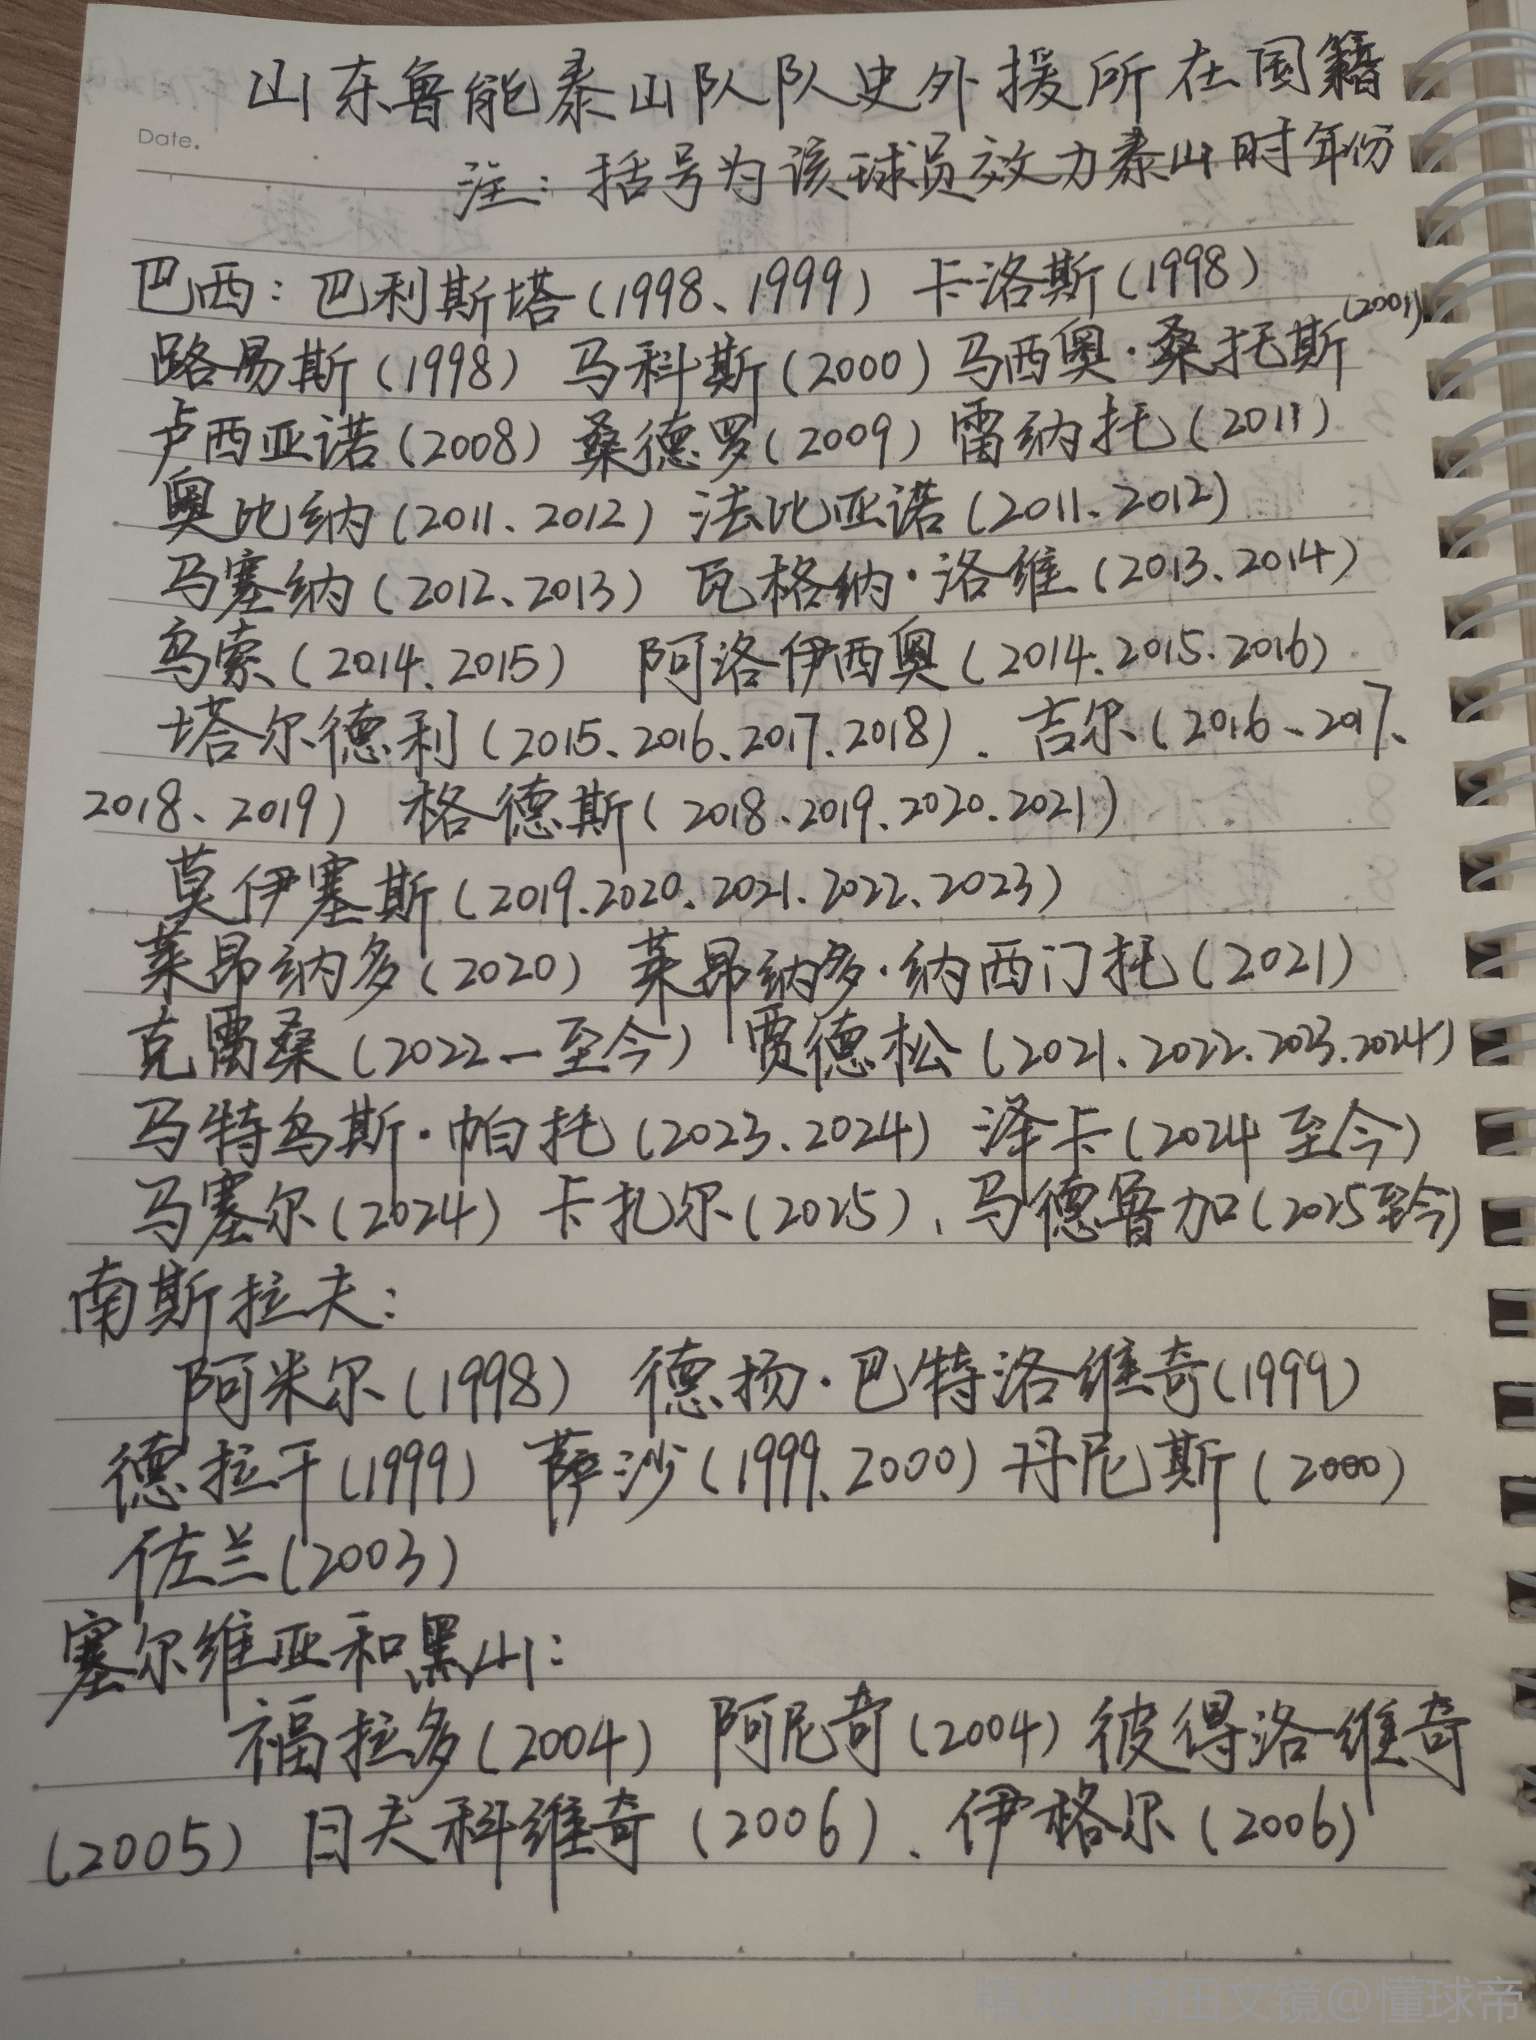 山东鲁能泰山队队史外援所在国籍
Date.
注：括号为该球员效力泰山时年份
巴西：巴利斯塔(1998、1999) 卡洛斯(1998)
路易斯(1998) 马科斯(2000) 马西奥·桑托斯(2001)
卢西亚诺(2008) 桑德罗(2009) 雷纳托(2011)
奥比纳(2011、2012) 法比亚诺(2011、2012)
马塞纳(2012、2013) 瓦格纳·洛维(2013、2014)
乌索(2014、2015) 阿洛伊西奥(2014、2015、2016)
塔尔德利(2015、2016、2017、2018)、吉尔(2016、2017、
2018、2019) 格德斯(2018、2019、2020、2021)
莫伊塞斯(2019、2020、2021、2022、2023)
莱昂纳多(2020) 莱昂纳多·纳西门托(2021)
克雷桑(2022—至今) 贾德松(2021、2022、2023、2024)
马特乌斯·帕托(2023、2024) 泽卡(2024至今)
马塞尔(2024) 卡扎尔(2025)、马德鲁加(2025至今)
南斯拉夫：
阿米尔(1998) 德扬·巴特洛维奇(1999)
德拉干(1999) 萨沙(1999、2000) 丹尼斯(2000)
佐兰(2003)
塞尔维亚和黑山：
福拉多(2004) 阿尼奇(2004) 彼得洛维奇
(2005) 日夫科维奇(2006)、伊格尔(2006)
@懂球帝